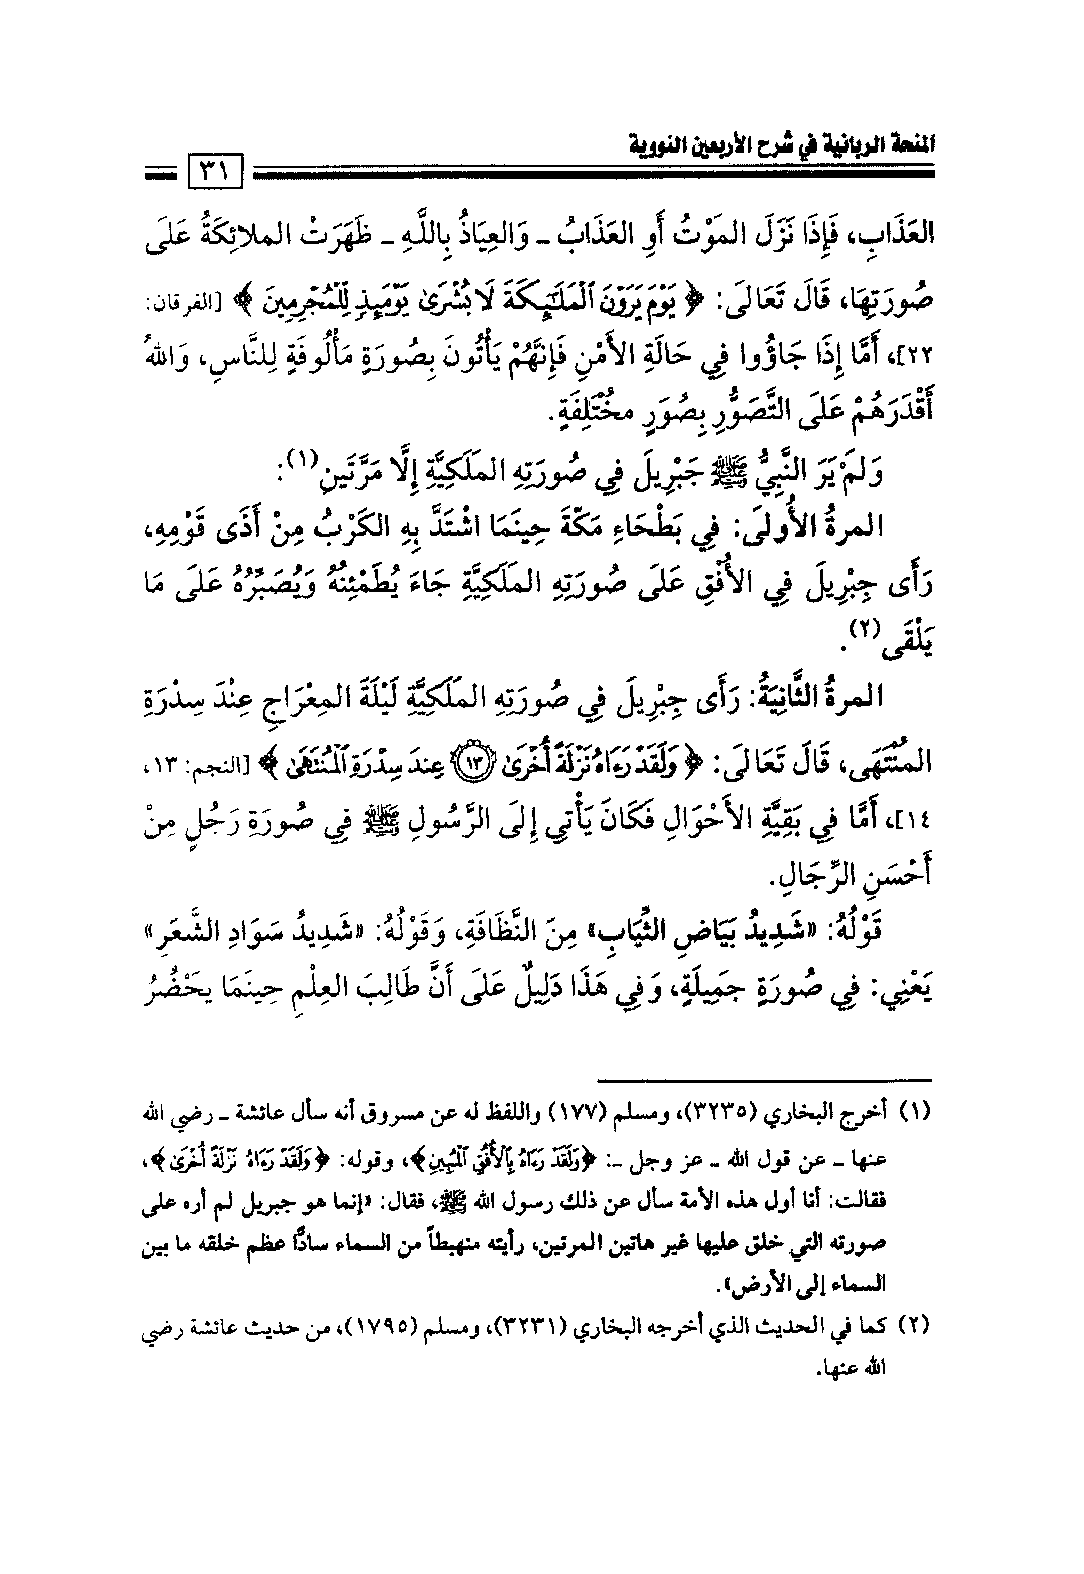 المنحة الربانية في شرح الأربعين النووية
٣١
العَذَابِ، فَإِذَا نَزَلَ المَوْتُ أَوِ العَذَابُ ـ وَالعِيَاذُ بِاللَّهِ ـ ظَهَرَتْ الملائِكَةُ عَلَى
صُورَتِهَا، قَالَ تَعَالَى: ﴿ يَوْمَ يَرَوْنَ ٱلْمَلَٰٓئِكَةَ لَا بُشْرَىٰ يَوْمَئِذٍ لِّلْمُجْرِمِينَ ﴾ [الفرقان:
٢٢]، أَمَّا إِذَا جَاؤُوا فِي حَالَةِ الأَمْنِ فَإِنَّهُمْ يَأْتُونَ بِصُورَةٍ مَأْلُوفَةٍ لِلنَّاسِ، وَاللهُ
أَقْدَرَهُمْ عَلَى التَّصَوُّرِ بِصُوَرٍ مخْتَلِفَةٍ.
وَلَمْ يَرَ النَّبِيُّ ﷺ جَبْرِيلَ فِي صُورَتِهِ المَلَكِيَّةِ إِلَّا مَرَّتَينِ(١):
المرةُ الأُولَى: فِي بَطْحَاءِ مَكَّةَ حِينَمَا اشْتَدَّ بِهِ الكَرْبُ مِنْ أَذَى قَوْمِهِ،
رَأَى جِبْرِيلَ فِي الأُفُقِ عَلَى صُورَتِهِ المَلَكِيَّةِ جَاءَ يُطَمْئِنُهُ وَيُصَبِّرُهُ عَلَى مَا
يَلْقَى(٢).
المرةُ الثَّانِيَةُ: رَأَى جِبْرِيلَ فِي صُورَتِهِ المَلَكِيَّةِ لَيْلَةَ المِعْرَاجِ عِنْدَ سِدْرَةِ
المُنْتَهَى، قَالَ تَعَالَى: ﴿ وَلَقَدْ رَءَاهُ نَزْلَةً أُخْرَىٰ ﴿١٣﴾ عِندَ سِدْرَةِ ٱلْمُنتَهَىٰ ﴾ [النجم: ١٣،
١٤]، أَمَّا فِي بَقِيَّةِ الأَحْوَالِ فَكَانَ يَأْتِي إِلَى الرَّسُولِ ﷺ فِي صُورَةِ رَجُلٍ مِنْ
أَحْسَنِ الرِّجَالِ.
قَوْلُهُ: «شَدِيدُ بَيَاضِ الثِّيَابِ» مِنَ النَّظَافَةِ، وَقَوْلُهُ: «شَدِيدُ سَوَادِ الشَّعَرِ»
يَعْنِي: فِي صُورَةٍ جَمِيلَةٍ، وَفِي هَذَا دَلِيلٌ عَلَى أَنَّ طَالِبَ العِلْمِ حِينَمَا يحْضُرُ
(١) أخرج البخاري (٣٢٣٥)، ومسلم (١٧٧) واللفظ له عن مسروق أنه سأل عائشة ـ رضي الله
عنها ـ عن قول الله ـ عز وجل ـ: ﴿وَلَقَدْ رَءَاهُ بِٱلْأُفُقِ ٱلْمُبِينِ﴾، وقوله: ﴿وَلَقَدْ رَءَاهُ نَزْلَةً أُخْرَىٰ﴾،
فقالت: أنا أول هذه الأمة سأل عن ذلك رسول الله ﷺ، فقال: «إنما هو جبريل لم أره على
صورته التي خلق عليها غير هاتين المرتين، رأيته منهبطاً من السماء سادًّا عظم خلقه ما بين
السماء إلى الأرض».
(٢) كما في الحديث الذي أخرجه البخاري (٣٢٣١)، ومسلم (١٧٩٥)، من حديث عائشة رضي
الله عنها.